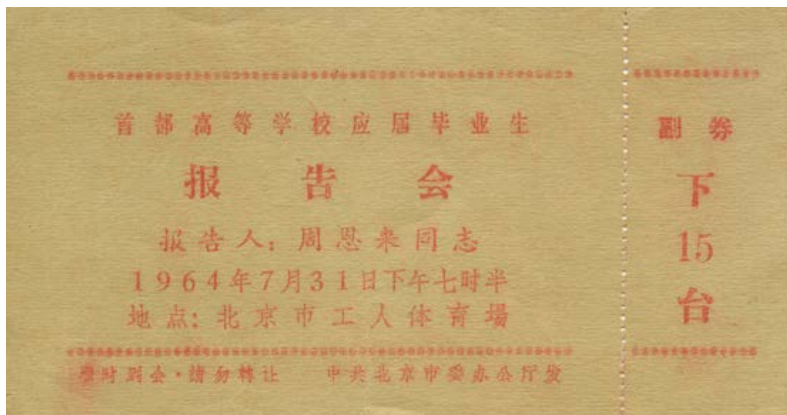 首都高等学校应届毕业生
报告会
报告人：周恩来同志
1964年7月31日下午七时半
地点：北京市工人体育場
准时到会·請勿轉让 中共北京市委办公厅发
副券
下
15
台